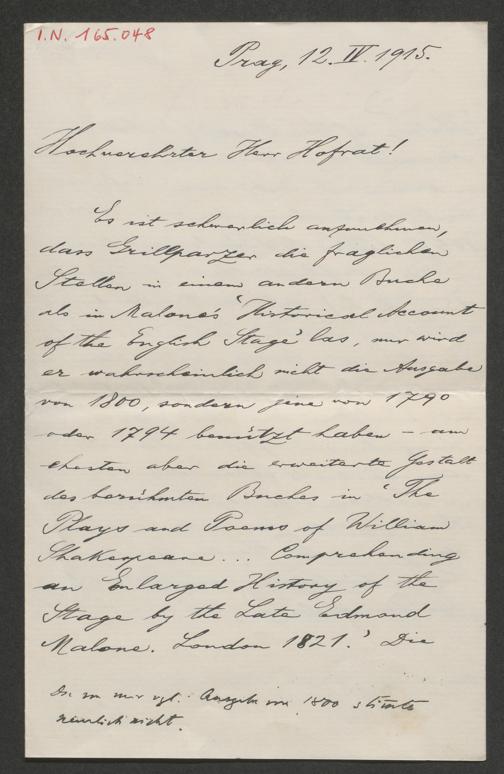 I.N. 165.048
Prag, 12. IV. 1915.
Hochverehrter Herr Hofrat!
Es ist schwerlich anzunehmen,
dass Grillparzer die fraglichen
Stellen in einem andern Buche
als in Malone's 'Historical Account
of the English Stage' las, nur wird
er wahrscheinlich nicht die Ausgabe
von 1800, sondern jene von 1790
oder 1794 benützt haben – am
ehesten aber die erweiterte Gestalt
des berühmten Buches in 'The
Plays and Poems of William
Shakespeare ... Comprehending
an Enlarged History of the
Stage by the Late Edmond
Malone. London 1821.' Die
mir vgl. Ausgabe von 1800 stimmte
nämlich nicht.